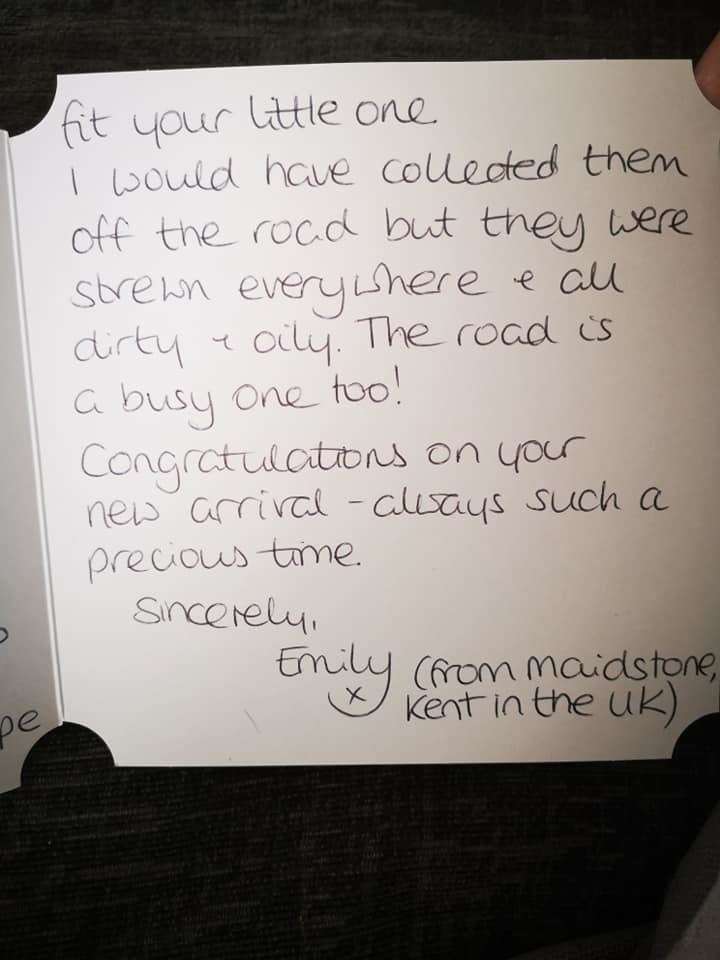 fit your little one
I would have collected them
off the road but they were
strewn everywhere & all
dirty & oily. The road is
a busy one too!
Congratulations on your
new arrival - always such a
precious time.
Sincerely,
Emily (from Maidstone,
x Kent in the UK)
pe